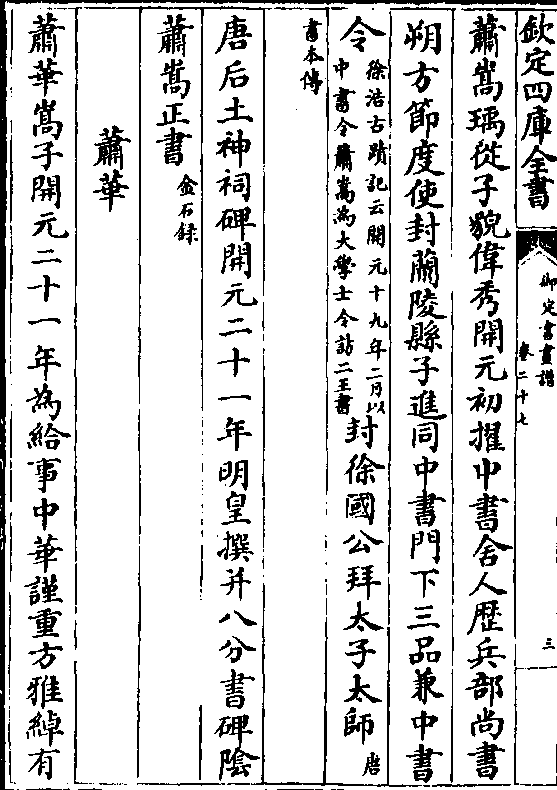 欽定四庫全書
御定書畫譜
卷二十七
三
蕭嵩瑀從子貌偉秀開元初擢中書舍人歴兵部尚書
朔方節度使封蘭陵縣子進同中書門下三品兼中書
令
徐浩古蹟記云開元十九年二月以
中書令蕭嵩為大學士令訪二王書
封徐國公拜太子太師
唐
書本傳
唐后土神祠碑開元二十一年明皇撰并八分書碑隂
蕭嵩正書
金石録
蕭華
蕭華嵩子開元二十一年為給事中華謹重方雅綽有